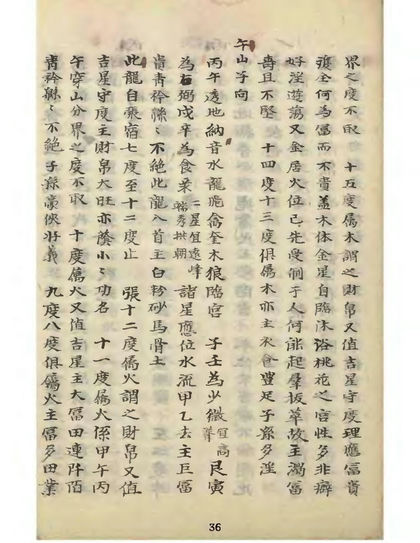 界之度不取 十五度屬木謂之財帛又值吉星守度理應富貴
復全何為富而不貴蓋木体金星自臨沐浴桃花之宮性多非癖
好淫遊蕩又金居火位已先受制于人何能起羣拔萃故主濁富
壽且不堅 十四度十三度俱屬木亦主衣食豐足子孫多淫
午山子向
丙午透地納音水龍 禽奎木狼臨宮 子壬為少微宜高 艮寅
為右弼戌辛為食祿 二星宜遠峰 秀拱朝 諸星應位水流甲乙去主巨富
貴青衿 不絕此龍八首主白粉砂馬骨土
此龍自張宿七度至十二度止 張十二度屬火謂之財帛又值
吉星守度主財帛大旺亦發小小功名 十一度屬火係甲午丙
午穿山分界之度不取 十度屬火又值吉星主大富田連阡陌
青衿 不絕子孫豪俠好義 九度八度俱屬火主富多田業
36